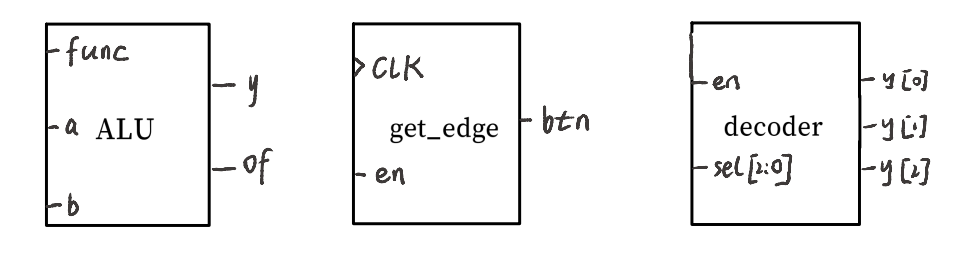 func
a
ALU
b
y
of
CLK
get_edge
en
btn
en
decoder
sel[2:0]
y[0]
y[1]
y[2]